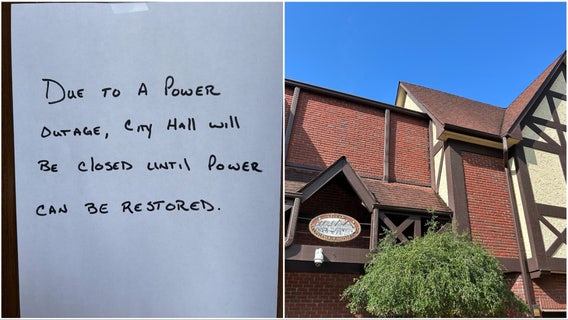 Due to a Power
outage, City Hall will
be closed until Power
can be restored.